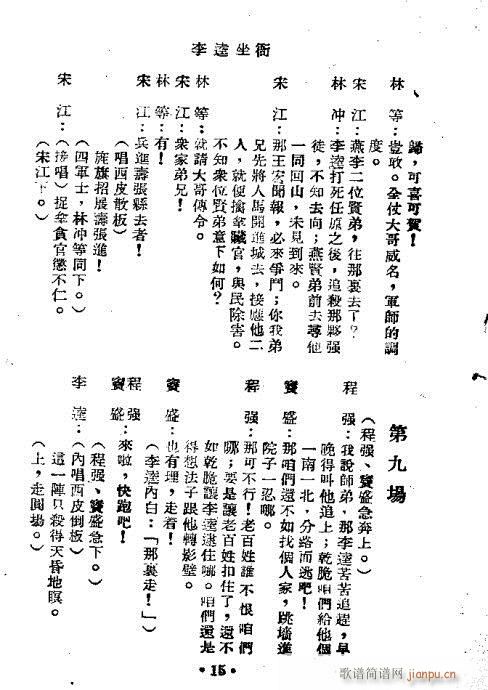 李逵坐衙
歸，可喜可賀！
林　等：豈敢。全仗大哥威名，軍師的調
度。
宋　江：燕李二位賢弟，往那裏去了？
林　冲：李逵打死任原之後，追殺那夥强
徒，不知去向；燕賢弟前去尋他
一同回山，未見到來。
宋　江：那王宏聞報，必來爭鬥；你我弟
兄先將人馬開進城去，接應他二
人，就便擒拿贓官，與民除害。
不知衆位賢弟意下如何？
林　等：就請大哥傳令。
宋　江：衆家弟兄！
林　等：有！
宋　江：兵進壽張縣去者！
（唱西皮散板）
旌旗招展壽張進！
（四軍士，林冲等同下。）
宋　江：（接唱）捉拿貪官懲不仁。
（宋江下。）
第九場
（程强、竇盛急奔上。）
程　强：我說師弟，那李逵苦苦追趕，早
晚得叫他追上；乾脆咱們給他個
一南一北，分路而逃吧！
竇　盛：那咱們還不如找個人家，跳墻進
院子一忍哪。
程　强：那可不行！老百姓誰不恨咱們
哪；要是讓老百姓扣住了，還不
如乾脆讓李逵逮住哪。咱們還是
得想法子跟他轉影壁。
竇　盛：也有理，走着！
（李逵內白：「那裏走！」）
程　强
竇　盛：來啦，快跑吧！
（程强、竇盛急下。）
李　逵：（內唱西皮倒板）
這一陣只殺得天昏地暝。
（上，走圓場。）
• 15 •
歌谱简谱网
jianpu.cn